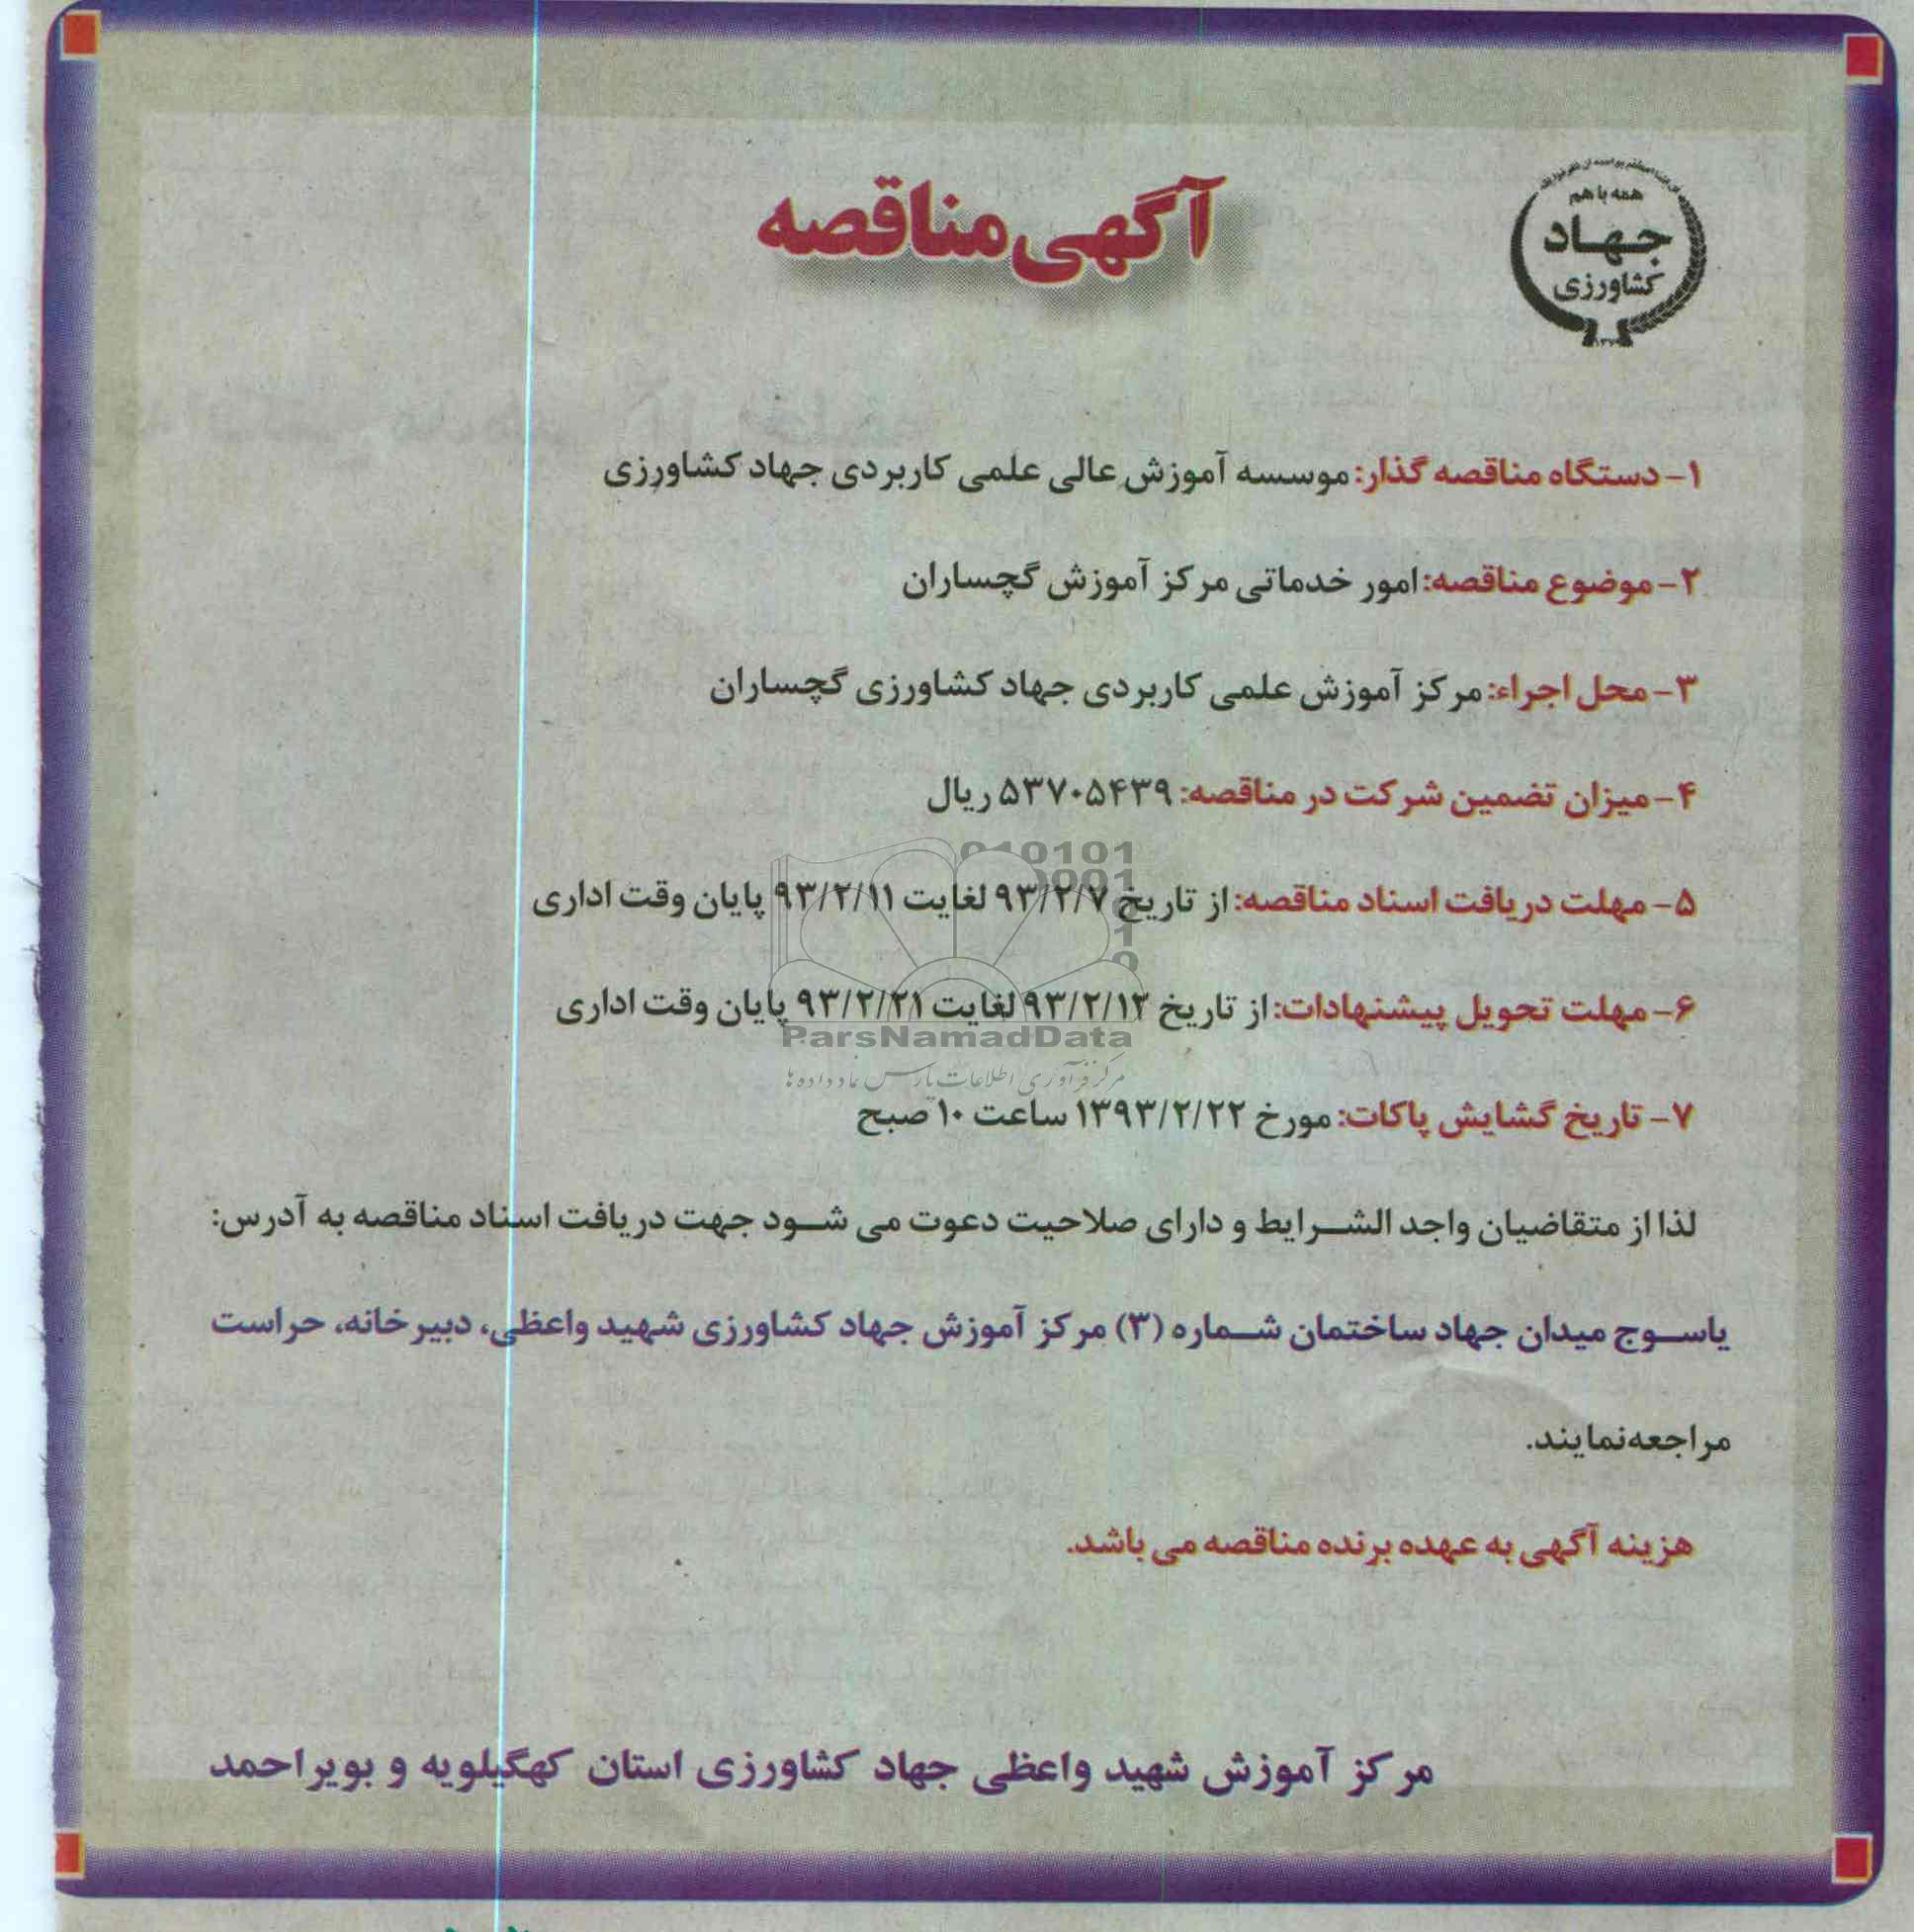 همه با هم
جهاد
کشاورزی
آگهی مناقصه
۱- دستگاه مناقصه گذار: موسسه آموزش عالی علمی کاربردی جهاد کشاورزی
۲- موضوع مناقصه: امور خدماتی مرکز آموزش گچساران
۳- محل اجراء: مرکز آموزش علمی کاربردی جهاد کشاورزی گچساران
۴- میزان تضمین شرکت در مناقصه: ۵۳۷۰۵۴۳۹ ریال
۵- مهلت دریافت اسناد مناقصه: از تاریخ ۹۳/۲/۷ لغایت ۹۳/۲/۱۱ پایان وقت اداری
۶- مهلت تحویل پیشنهادات: از تاریخ ۹۳/۲/۱۲ لغایت ۹۳/۲/۲۱ پایان وقت اداری
ParsNamadData
مرکز فرآوری اطلاعات پارس نماد داده ها
۷- تاریخ گشایش پاکات: مورخ ۱۳۹۳/۲/۲۲ ساعت ۱۰ صبح
لذا از متقاضیان واجد الشرایط و دارای صلاحیت دعوت می شود جهت دریافت اسناد مناقصه به آدرس:
یاسوج میدان جهاد ساختمان شماره (۳) مرکز آموزش جهاد کشاورزی شهید واعظی، دبیرخانه، حراست
مراجعه‌نمایند.
هزینه آگهی به عهده برنده مناقصه می باشد.
مرکز آموزش شهید واعظی جهاد کشاورزی استان کهگیلویه و بویراحمد